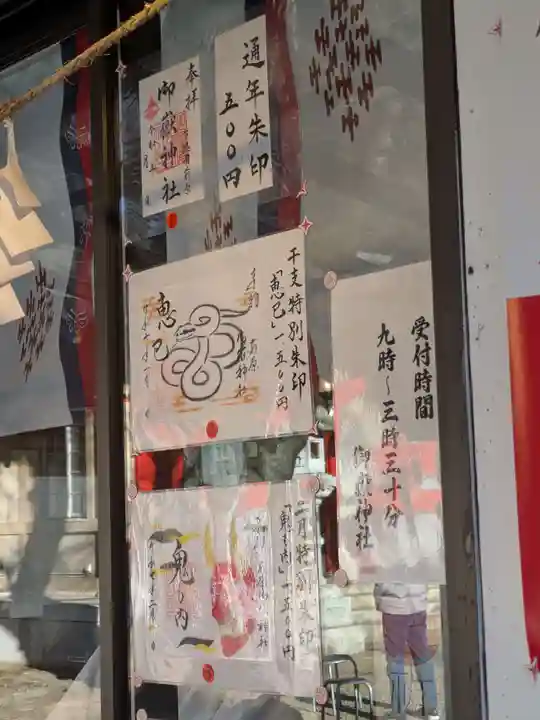 通年朱印
五〇〇円
奉拝
御嶽神社
干支特別朱印
「恵巳」一、五〇〇円
恵巳
受付時間
九時～三時三十分
御嶽神社
二月特別朱印
「鬼も内」一、五〇〇円
鬼も内